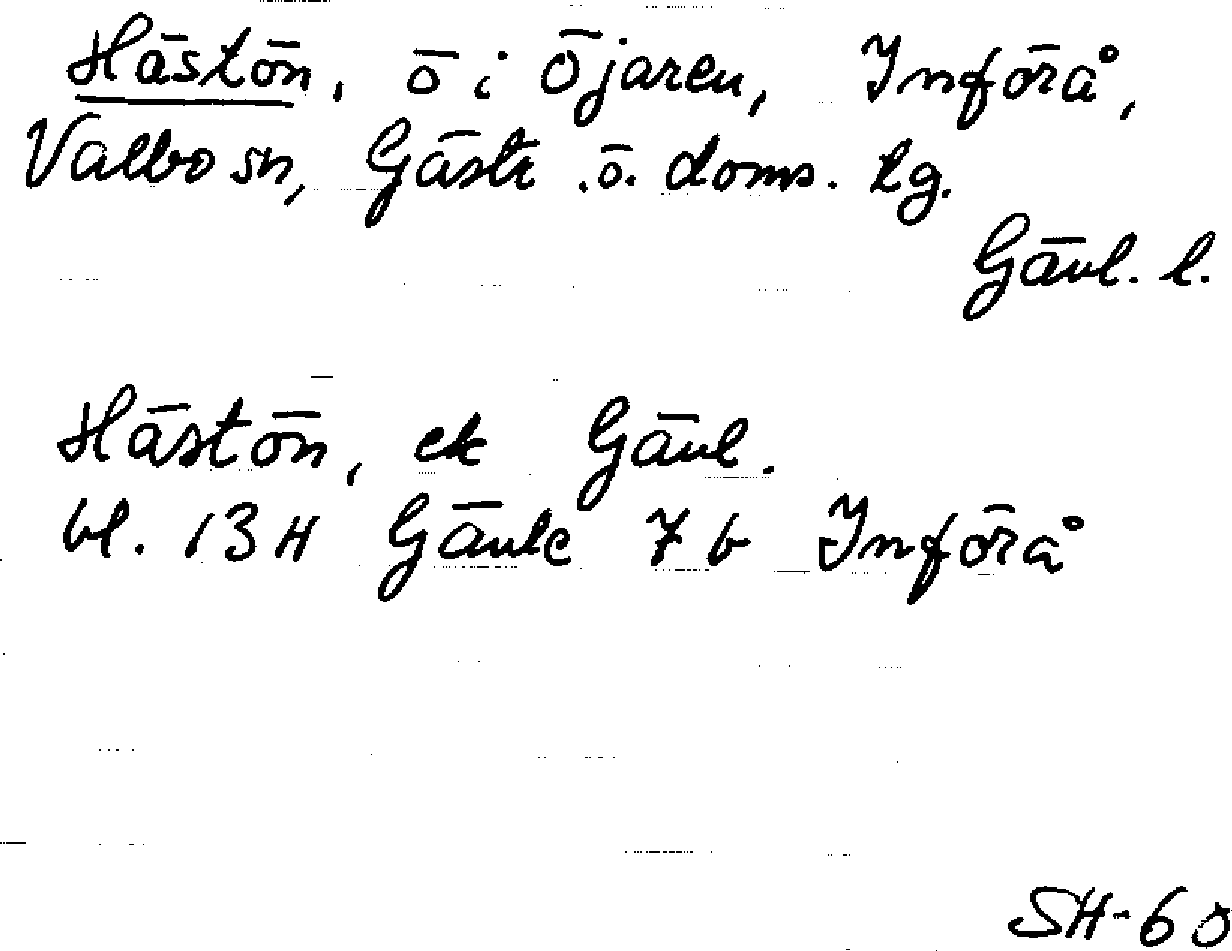 Hästön, ö i Öjaren, Införå,
Valbo sn, Gästr .ö. doms. tg.
Gävl. l.
Hästön, ek Gävl.
bl. 13 H Gävle 7 b Införå
SH-60